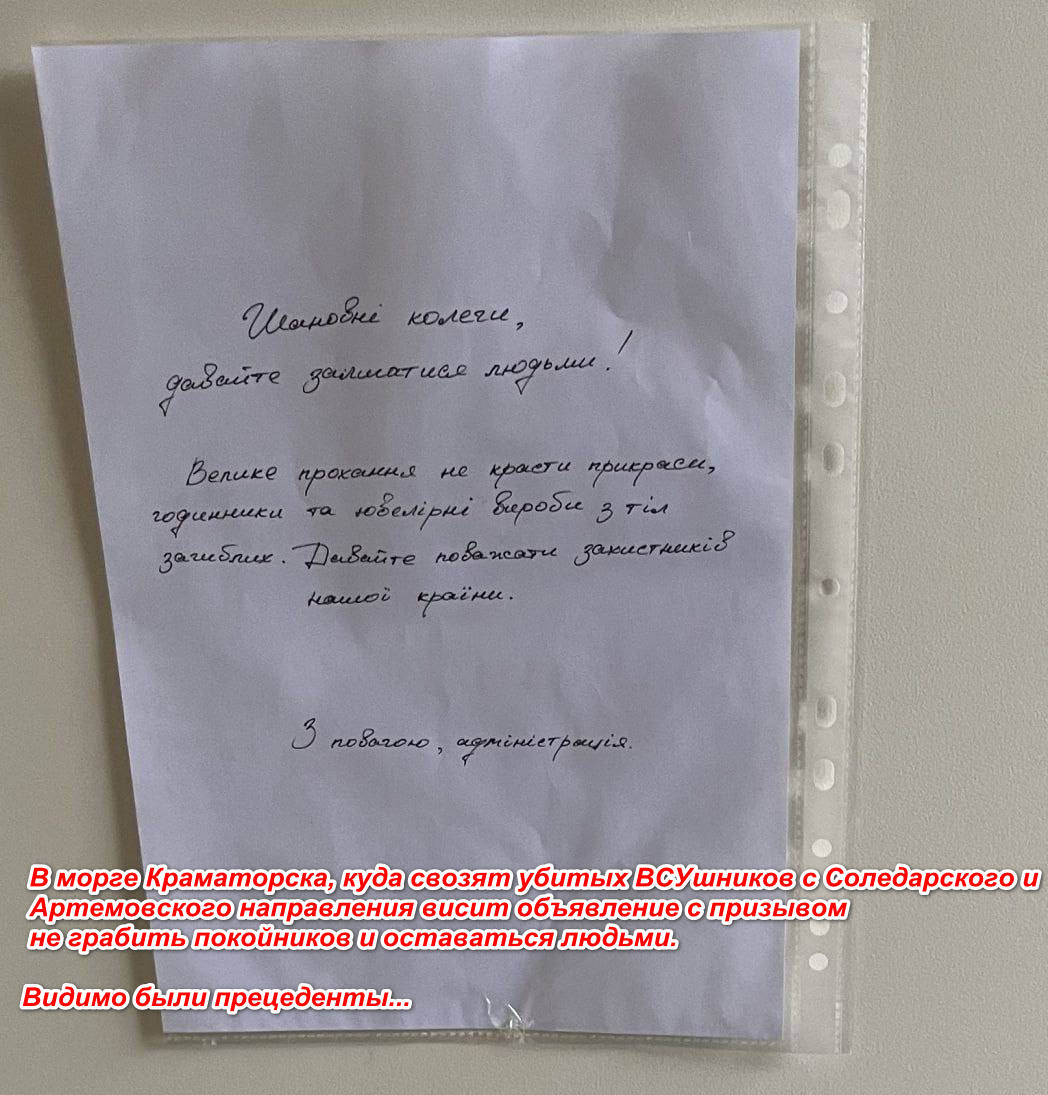 Шановні колеги,
давайте залишатися людьми!
Велике прохання не красти прикраси,
годинники та ювелірні вироби з тіл
загиблих. Давайте поважати захистників
нашої країни.
З повагою, адміністрація.
В морге Краматорска, куда свозят убитых ВСУшников с Соледарского и
Артемовского направления висит объявление с призывом
не грабить покойников и оставаться людьми.
Видимо были прецеденты...